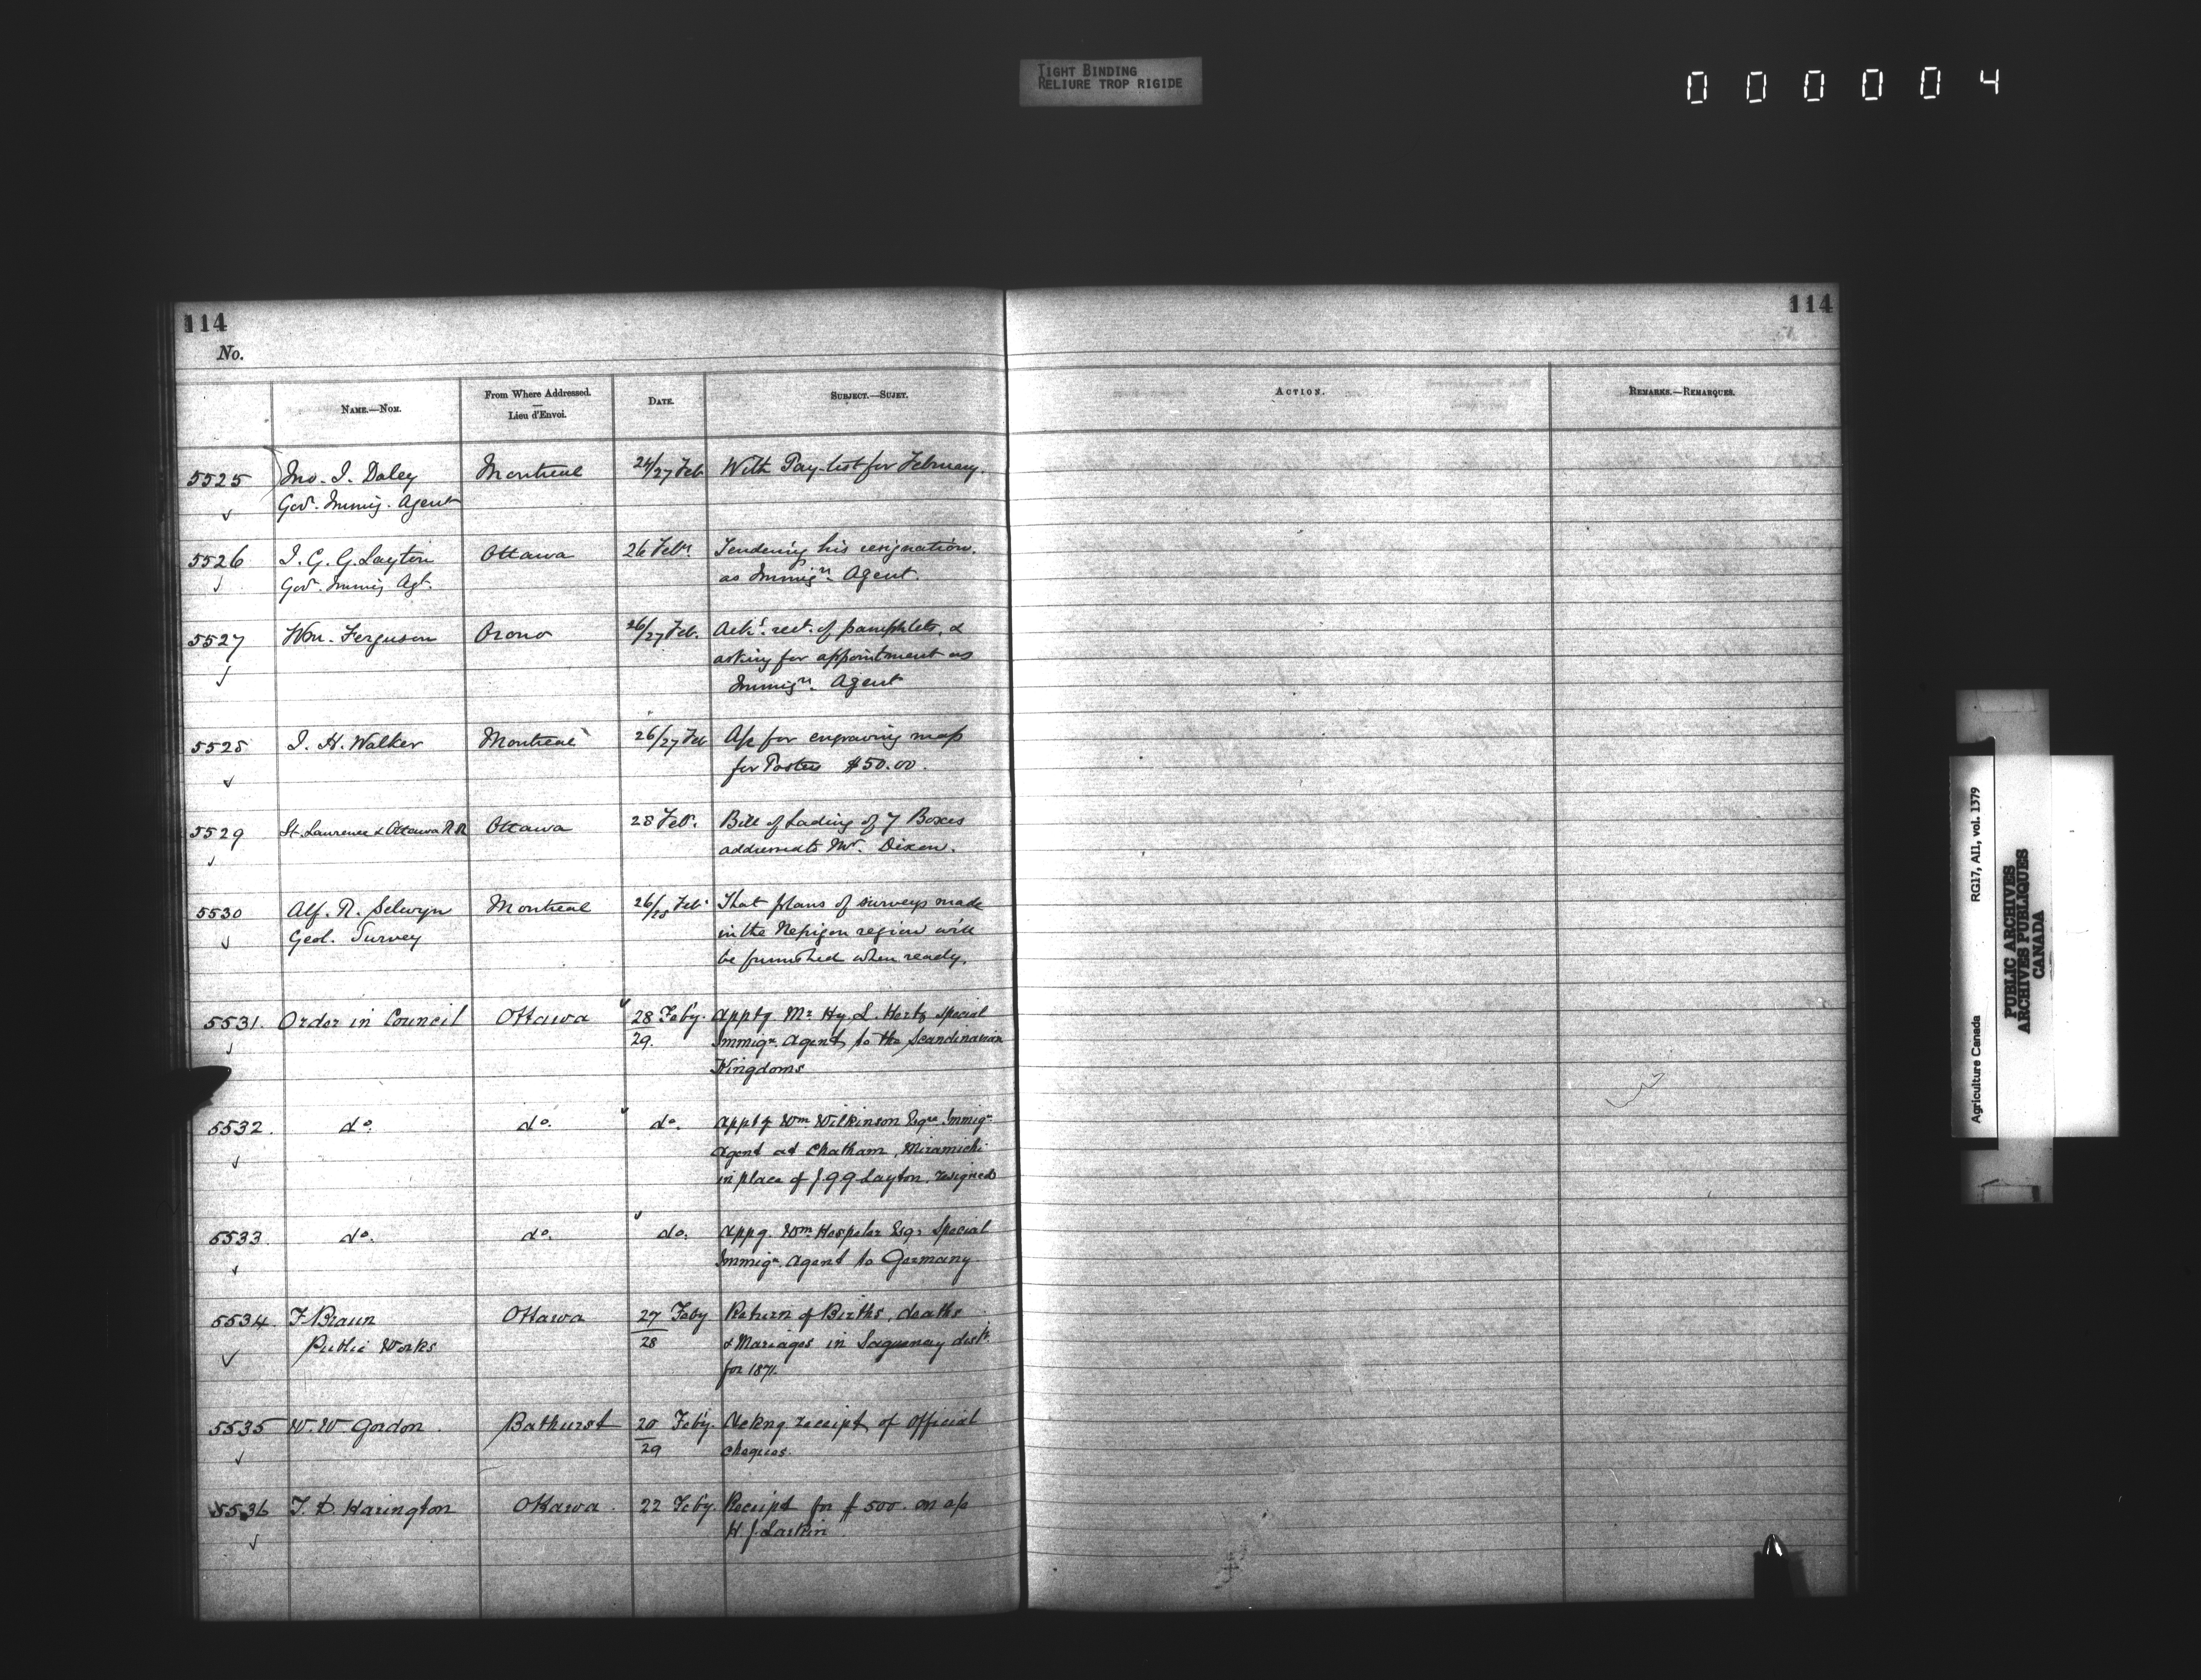 TIGHT BINDING
RELIURE TROP RIGIDE
000004
114
114
No.
NAME.—NOM.
From Where Addressed.
—
Lieu d'Envoi.
DATE.
SUBJECT.—SUJET.
ACTION.
REMARKS.—REMARQUES.
5525 Jno. I. Daley Montreal 26/27 Feb. With Pay-list for February.
Govt. Immig. Agent
5526 J. G. G. Layton Ottawa 26 Feby. Tendering his resignation
Govt. Immig. Agt. as Immign. Agent.
5527 Wm. Ferguson Orono 26/27 Feb. Ack'g. rect. of pamphlets, &
asking for appointment as
Immign. Agent
5528 J. H. Walker Montreal 26/27 Feb A/c for engraving map
for Posters $50.00.
5529 St. Laurence & Ottawa R.R. Ottawa 28 Feb. Bill of Lading of 7 Boxes
addressed to Mr. Dixon.
5530 Alf. R. Selwyn Montreal 26/28 Feb. That plans of surveys made
Geol. Survey in the Nepigon region will
be furnished when ready.
5531. Order in Council Ottawa 28 Feby. Apptg Mr Hy. L. Hertz Special
29. Immign. Agent to the Scandinavian
Kingdoms
5532. do. do. do. Apptg Wm Wilkinson Esqre Immign
Agent at Chatham, Miramichi
in place of J G G Layton, resigned
5533 do. do. do. Appg. Wm. Hespeler Esqr Special
Immign. Agent to Germany
5534 F Braun Ottawa 27 Feby Return of Births, deaths
Public Works 28 & Mariages in Saguenay distt.
for 1871.
5535 W. W. Gordon. Bathurst 20 Feby. Ackng receipt of official
29 cheques.
5536 T. D. Harington Ottawa. 22 Feby. Receipt for $500. on a/c
H. J. Larkin
Agriculture Canada RG17, AII, vol. 1379
PUBLIC ARCHIVES
ARCHIVES PUBLIQUES
CANADA